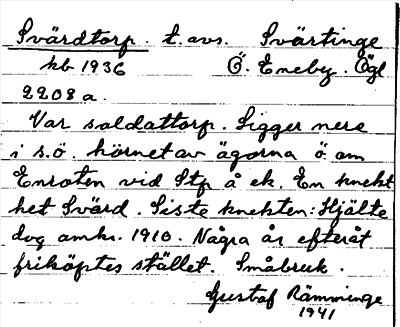 Svärdtorp. t. avs. Svärtinge
kb 1936 Ö. Eneby. Ögl
2208 a.
Var soldattorp. Ligger nere
i s.ö. hörnet av ägorna ö. om
Enroten vid Stp å ek. En knekt
het Svärd. Siste knekten: Hjälte
dog omkr. 1910. Några år efteråt
friköptes stället. Småbruk.
Gustaf Rämninge
1941